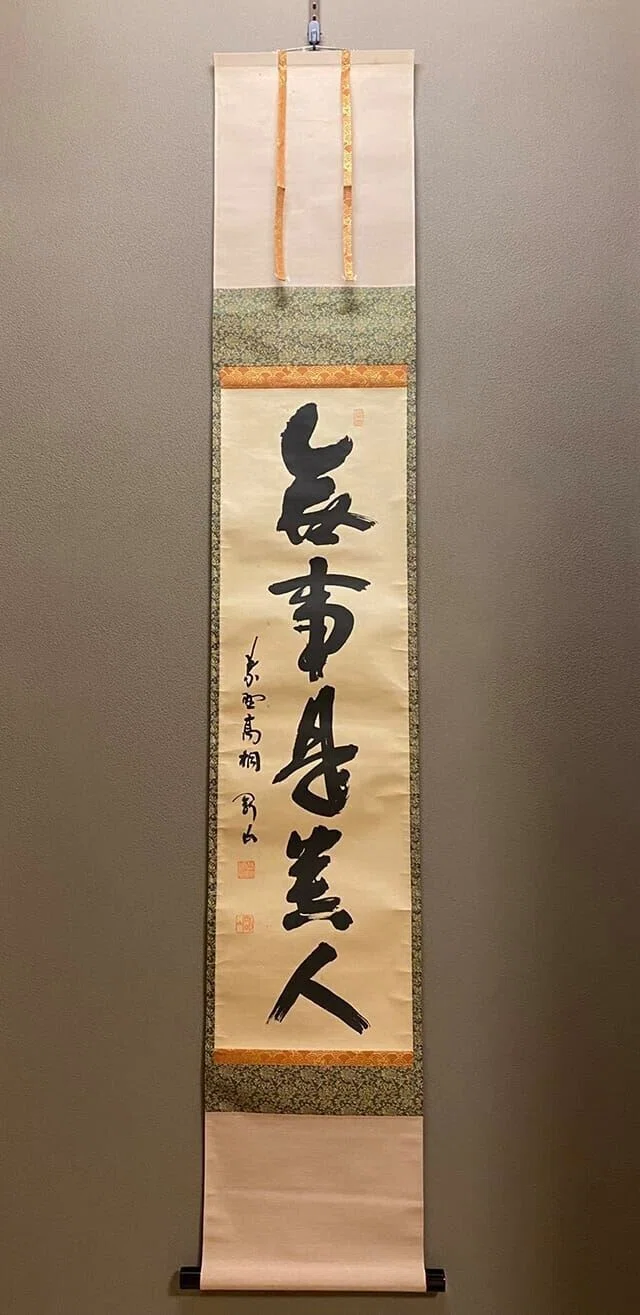 無事是貴人
紫野高桐 剛山